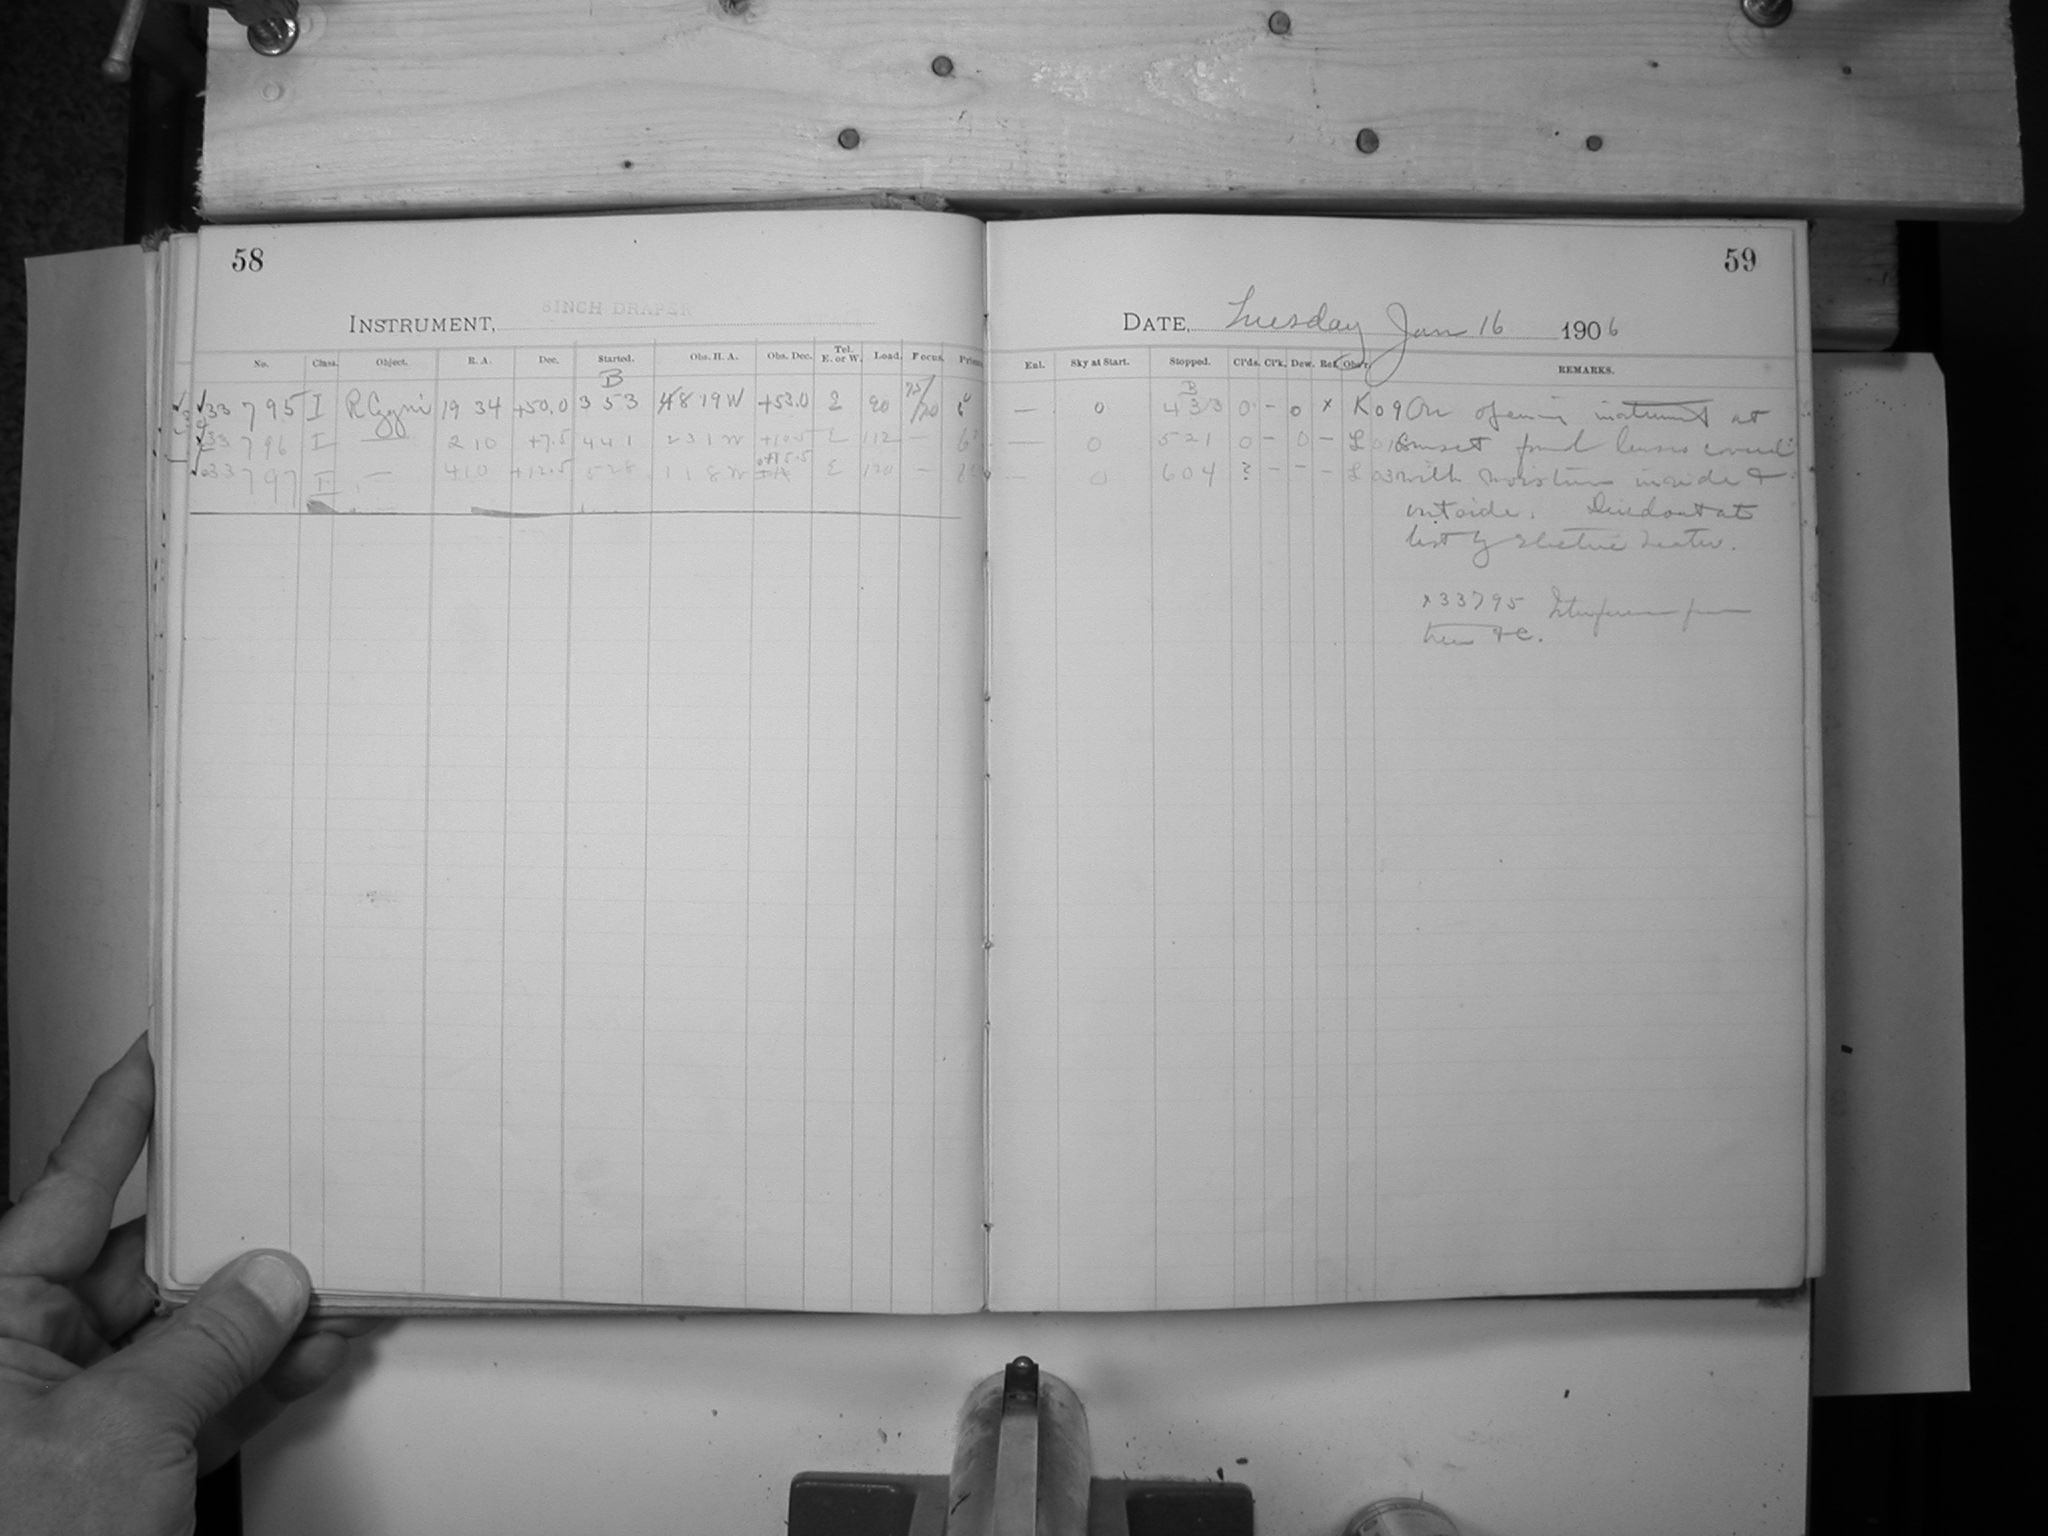 58
59
INSTRUMENT, 8INCH DRAPER
DATE, Tuesday Jan 16 1906
No. Class. Object. R. A. Dec. Started. Obs. H. A. Obs. Dec. Tel. E. or W. Load. Focus.
Enl. Sky at Start. Stopped. Cl'ds. Cl'k. Dew. Ref. Obs'r. REMARKS.
B
B
33795 I R Cygni 19 34 +50.0 3 53 8 19 W +53.0 E 90
— 0 4 33 0 - 0 x K 09 On opening instrument at
33796 I — 2 10 +7.5 4 41 2 31 W +10.5 E 112 —
— 0 5 21 0 - 0 - L sunset found lenses covered
33797 I — 4 10 +12.5 5 28 1 18 W +15.5 E 120 —
— 0 6 04 ? - - - L 03 with moisture inside &
outside. Dried out at
last by electric heater.
x33795 Interference from
trees &c.